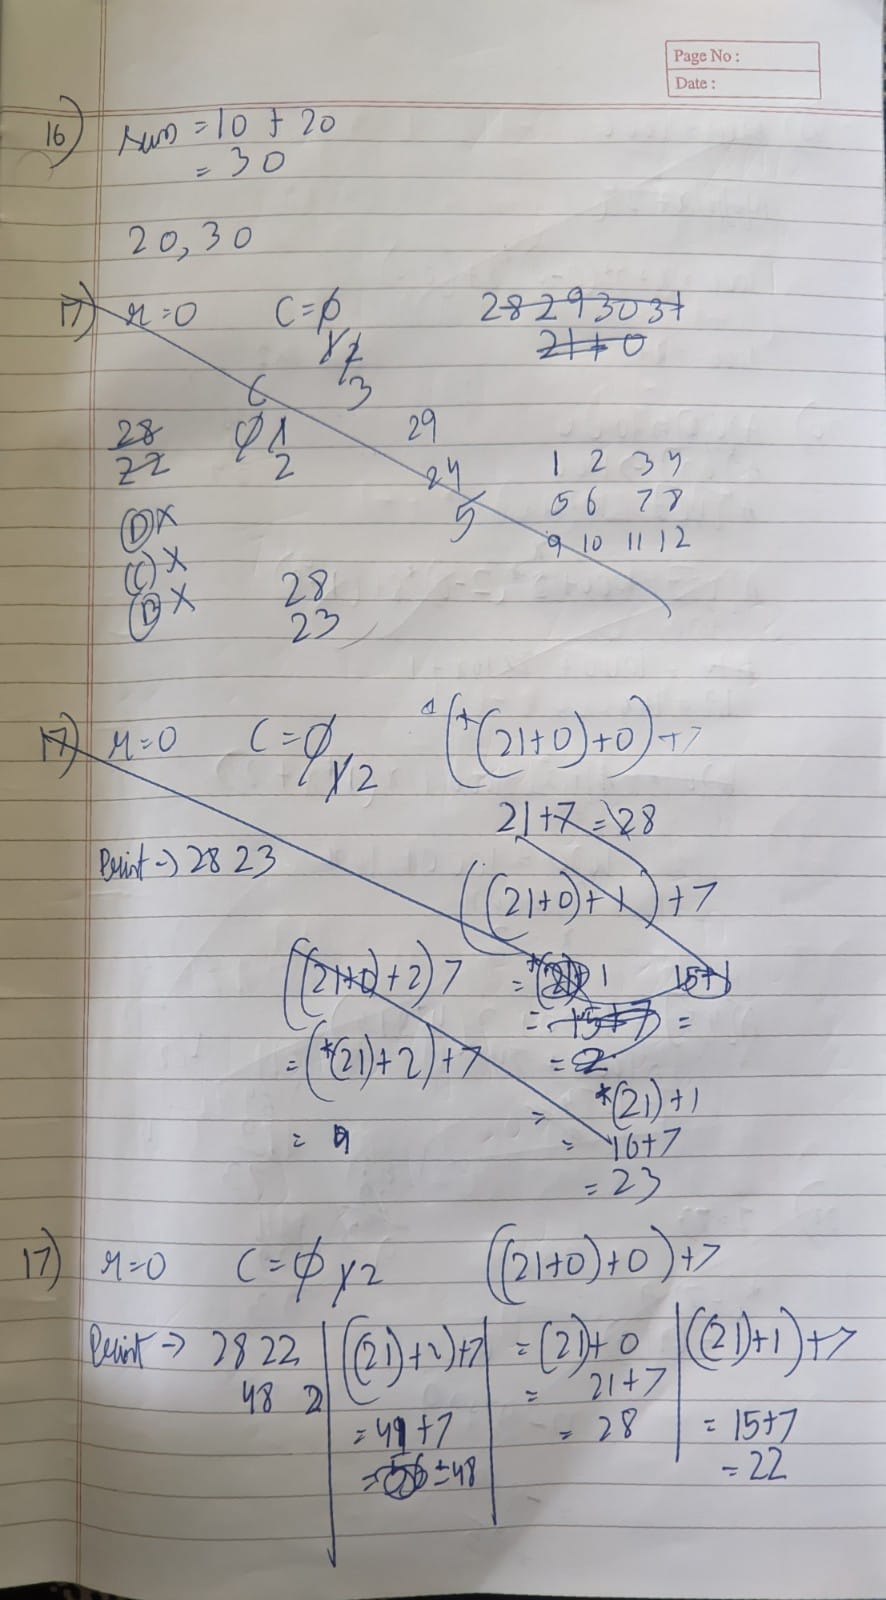 Page No :
Date :
16) sum = 10 + 20
= 30
20, 30
17) r=0 C=0 28 29 30 31
1 2 21+0
3
C
28 0 1 29
22 2 24 1 2 3 4
5 5 6 7 8
D X 9 10 11 12
C X
B X 28
23
17) r=0 C=0 1 2 *(*(21+0)+0)+7
21+7=28
Print → 28 23
((21+0)+1)+7
((21+0)+2)7 = *(21)+1 15+1
= 15+7 =
= (*(21)+2)+7 = 2
= *(21)+1
= 9 = 16+7
= 23
17) r=0 C=0 1 2 ((21+0)+0)+7
Print → 28 22 ((21)+2)+7 = (21)+0 ((21)+1)+7
48 2 = 21+7
= 41+7 = 28 = 15+7
= 56 = 48 = 22